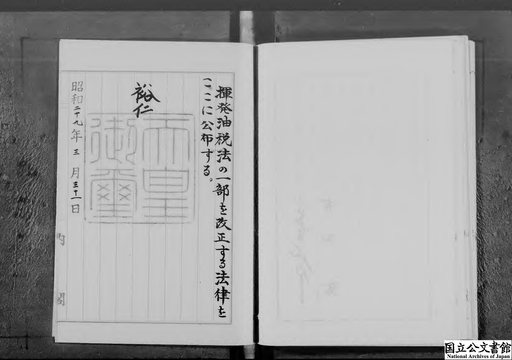 揮発油税法の一部を改正する法律を
ここに公布する。
裕仁
天皇
御璽
昭和二十九年三月三十一日
内閣
国立公文書館
National Archives of Japan